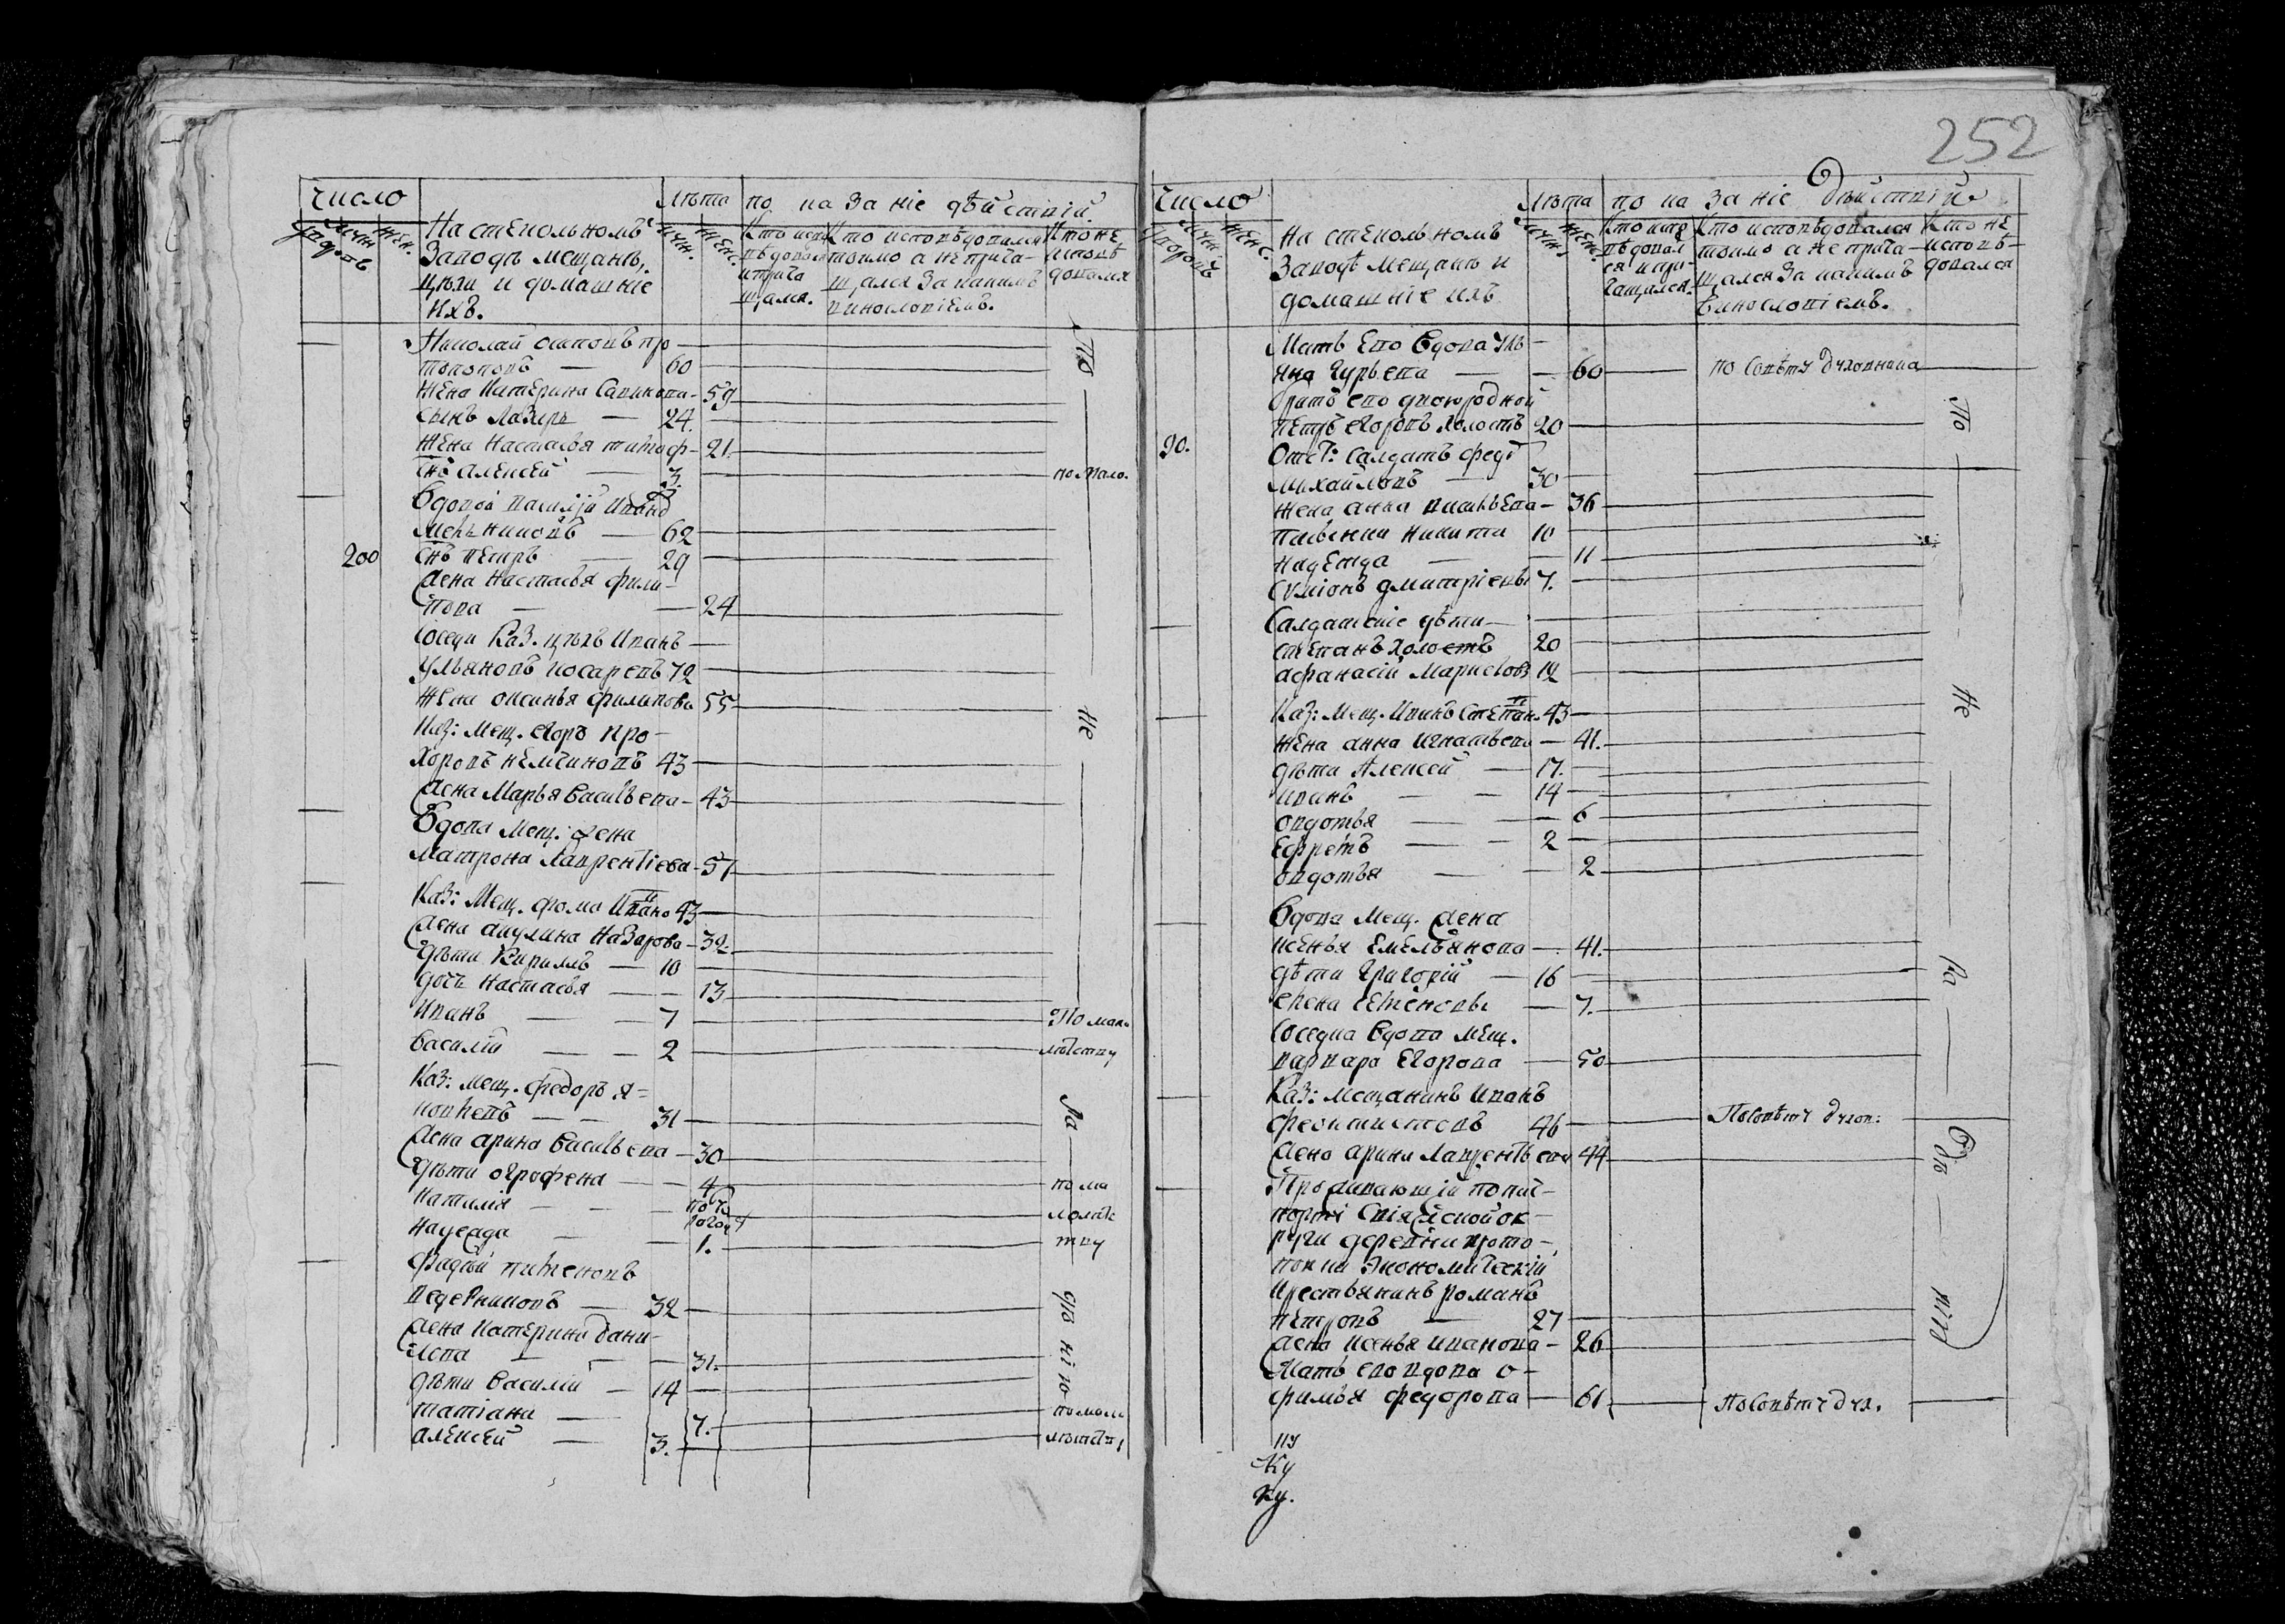 252
число
лѣта
по каза ніе дѣйствій
дворовъ
муж
жен.
На стекольномъ
Заводѣ мещанъ,
цѣхи и домашніе
ихъ.
муж.
женс.
Кто испо
вѣдовал
и прича
щался.
Кто исповѣдовался
токмо а не прича-
щался За какимъ
винословіемъ.
Кто не
исповѣ
довался
Николай осиповъ про-
топоповъ — 60
жена катерина Савикова - 59
сынъ Лазарь — 24.
жена настасья тимоф - 21.
снъ алексей — 3. по мало.
Вдовой василій Ивано
мельниковъ — 62
200 снъ петръ — 29
Жена настасья фили-
пова — 24
Соседи Каз. цѣхъ Иванъ —
ульяновъ косаревъ 72
жена оксинья филипова 55
Каз: мещ. егоръ про-
хоровъ немчиновъ 43
Жена Марья Васильева - 43
Вдова мещ: жена
матрона лаврентіева - 57
Каз: Мещ. фома Ивано 43
Жена акулина назарова - 32.
дѣти Кирилъ — 10
дочь настасья — 13
Иванъ — 7 По мало
Василій — 2 лѣтству
Каз: мещ. федоръ я-
ковлевъ — 31
Жена арина Васильева - 30
дѣти ографена — 4 по ма
наталія — лолѣт
надежда — 1. тву
фадѣй пименовъ
ведерниковъ — 32
Жена катерина дани-
лова — 31.
дѣти Василій — 14
татіана — 7. по мало
алексей — 3. лѣтству
По
не
ра
дѣ нію
число
лѣта
по ка за ніе дѣйствій
дворовъ
муж
женс.
на стекольномъ
Заводѣ мещанъ и
домашніе ихъ
муж.
женс.
Кто испо
вѣдовал
ся и при-
чащался.
Кто исповѣдовался
токмо а не прича-
щался За какимъ
винословіемъ.
Кто не
исповѣ-
довался
Мать Его Вдова улья
яна гурьева — 60 по Совѣту духовника
братъ его двоюродной
петръ егоровъ холостъ 20
90. Отст: салдатъ федо
михайловъ — 30
жена анна василъева - 36
пасынки никита 10
надежда — 11
Сѵміонъ дмитріевы 7.
Салдатскіе дѣти —
степанъ холостъ 20
афанасій 12
Каз: мещ. Иванъ Степан. 43
жена анна игнатьева — 41.
дѣти Алексей — 17.
иванъ — 14
овдотья — 6
Ефремъ — 2
овдотья — 2
Вдова мещ. Жена
ксенья Емельянова — 41.
дѣти григорій — 16
елена семеновы — 7.
Соседка Вдова мещ.
варвара Егорова — 50
Каз: мещанинъ Иванъ
феоктистовъ 46 По Совѣту духов:
Жена арина лаврентьева 44
Проживающій по пас-
порту Свіяжской ок-
руги деревни прото-
попки Экономическій
крестьянинъ романъ
петровъ — 27
Жена ксенья иванова - 26
Мать его вдова о-
фимья федорова — 61. По Совѣту дух.
По
не
ра
дѣ
нію
ку
ку
ку.